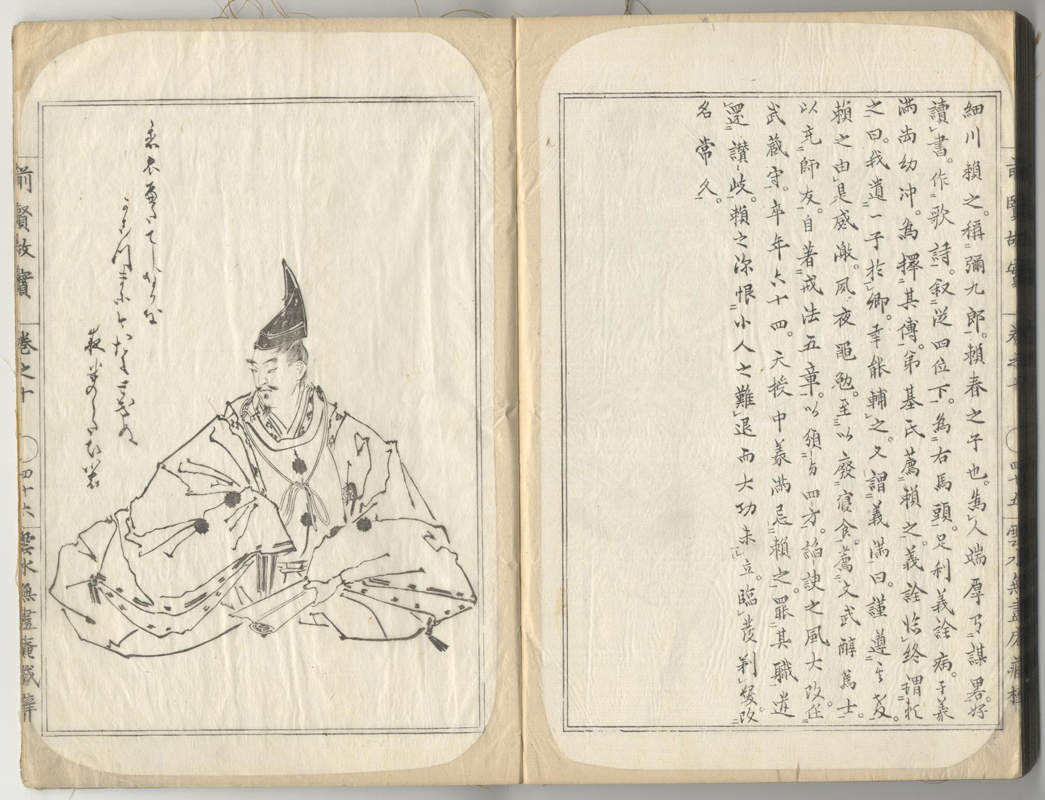 細川賴之。稱彌九郎。賴春之子也。為人端厚有謀略。好
讀書。作歌詩。叙從四位下。為右馬頭。足利義詮病。子義
滿尚幼冲。為擇其傅。弟基氏薦賴之。義詮臨終謂
之曰。我遺一子於卿。幸能輔之。又謂義滿曰。謹遵其教。
賴之由是感激。夙夜黽勉。至以廢寢食。薦文武醇篤士。
以充師友。自著戒法五章。以頒与四方。諂諛之風大改。任
武蔵守。卒年六十四。天授中義滿忌賴之。罷其職遣
還讃岐。賴之深恨小人之難退而大功未立。臨發剃髮改
名常久。
前賢故實 卷之十 四十五 雲水無盡庵藏梓
前賢故實 卷之十 四十六 雲水無盡庵藏梓